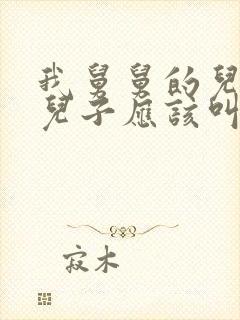 我舅舅的兒
兒子應該叫
寂木